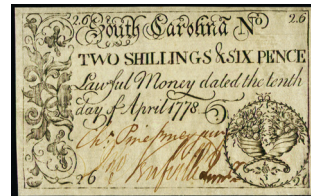 26 South Carolina No 26
TWO SHILLINGS & SIX PENCE
Lawful Money dated the tenth
day of April 1778
26 26